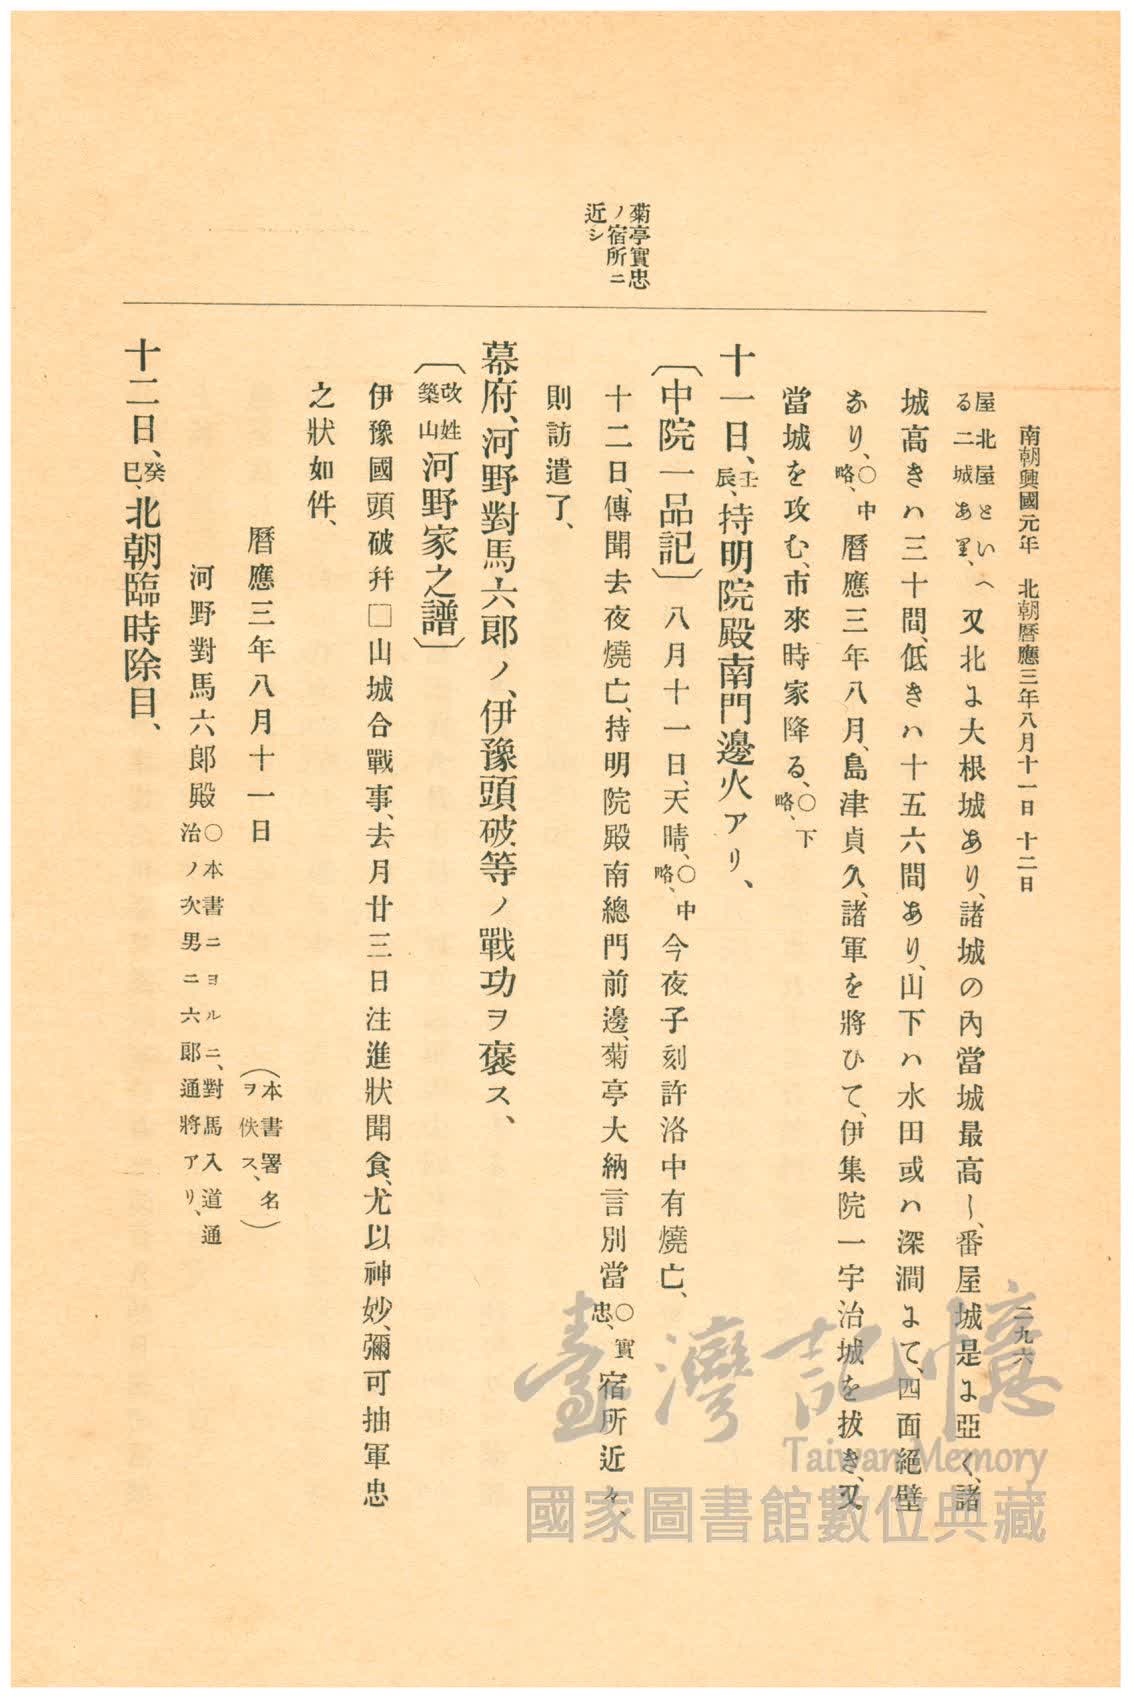 南朝興國元年　北朝曆應三年八月十一日　十二日
二九六
屋北屋といへる二城あり、又北に大根城あり、諸城の內當城最高し、番屋城是に亞く、諸
城高きハ三十間、低きハ十五六間あり、山下ハ水田或ハ深澗にて、四面絕壁
あり、〇中略、曆應三年八月、島津貞久、諸軍を將ひて、伊集院一宇治城を拔き、又
當城を攻む、市來時家降る、〇下略、
十一日、壬辰、持明院殿南門邊火アリ、
〔中院一品記〕八月十一日、天晴、〇中略、今夜子刻許洛中有燒亡、
菊亭實忠ノ宿所ニ近シ
十二日、傳聞去夜燒亡、持明院殿南總門前邊、菊亭大納言別當〇實忠、宿所近々、
則訪遣了、
幕府、河野對馬六郎ノ、伊豫頭破等ノ戰功ヲ褒ス、
〔改姓築山河野家之譜〕
伊豫國頭破幷□山城合戰事、去月廿三日注進狀聞食、尤以神妙、彌可抽軍忠
之狀如件、
曆應三年八月十一日　（本書署名ヲ佚ス、）
河野對馬六郎殿〇本書ニヨルニ、對馬入道通治ノ次男ニ六郎通將アリ、
十二日、癸巳、北朝臨時除目、
臺灣記憶
Taiwan Memory
國家圖書館數位典藏